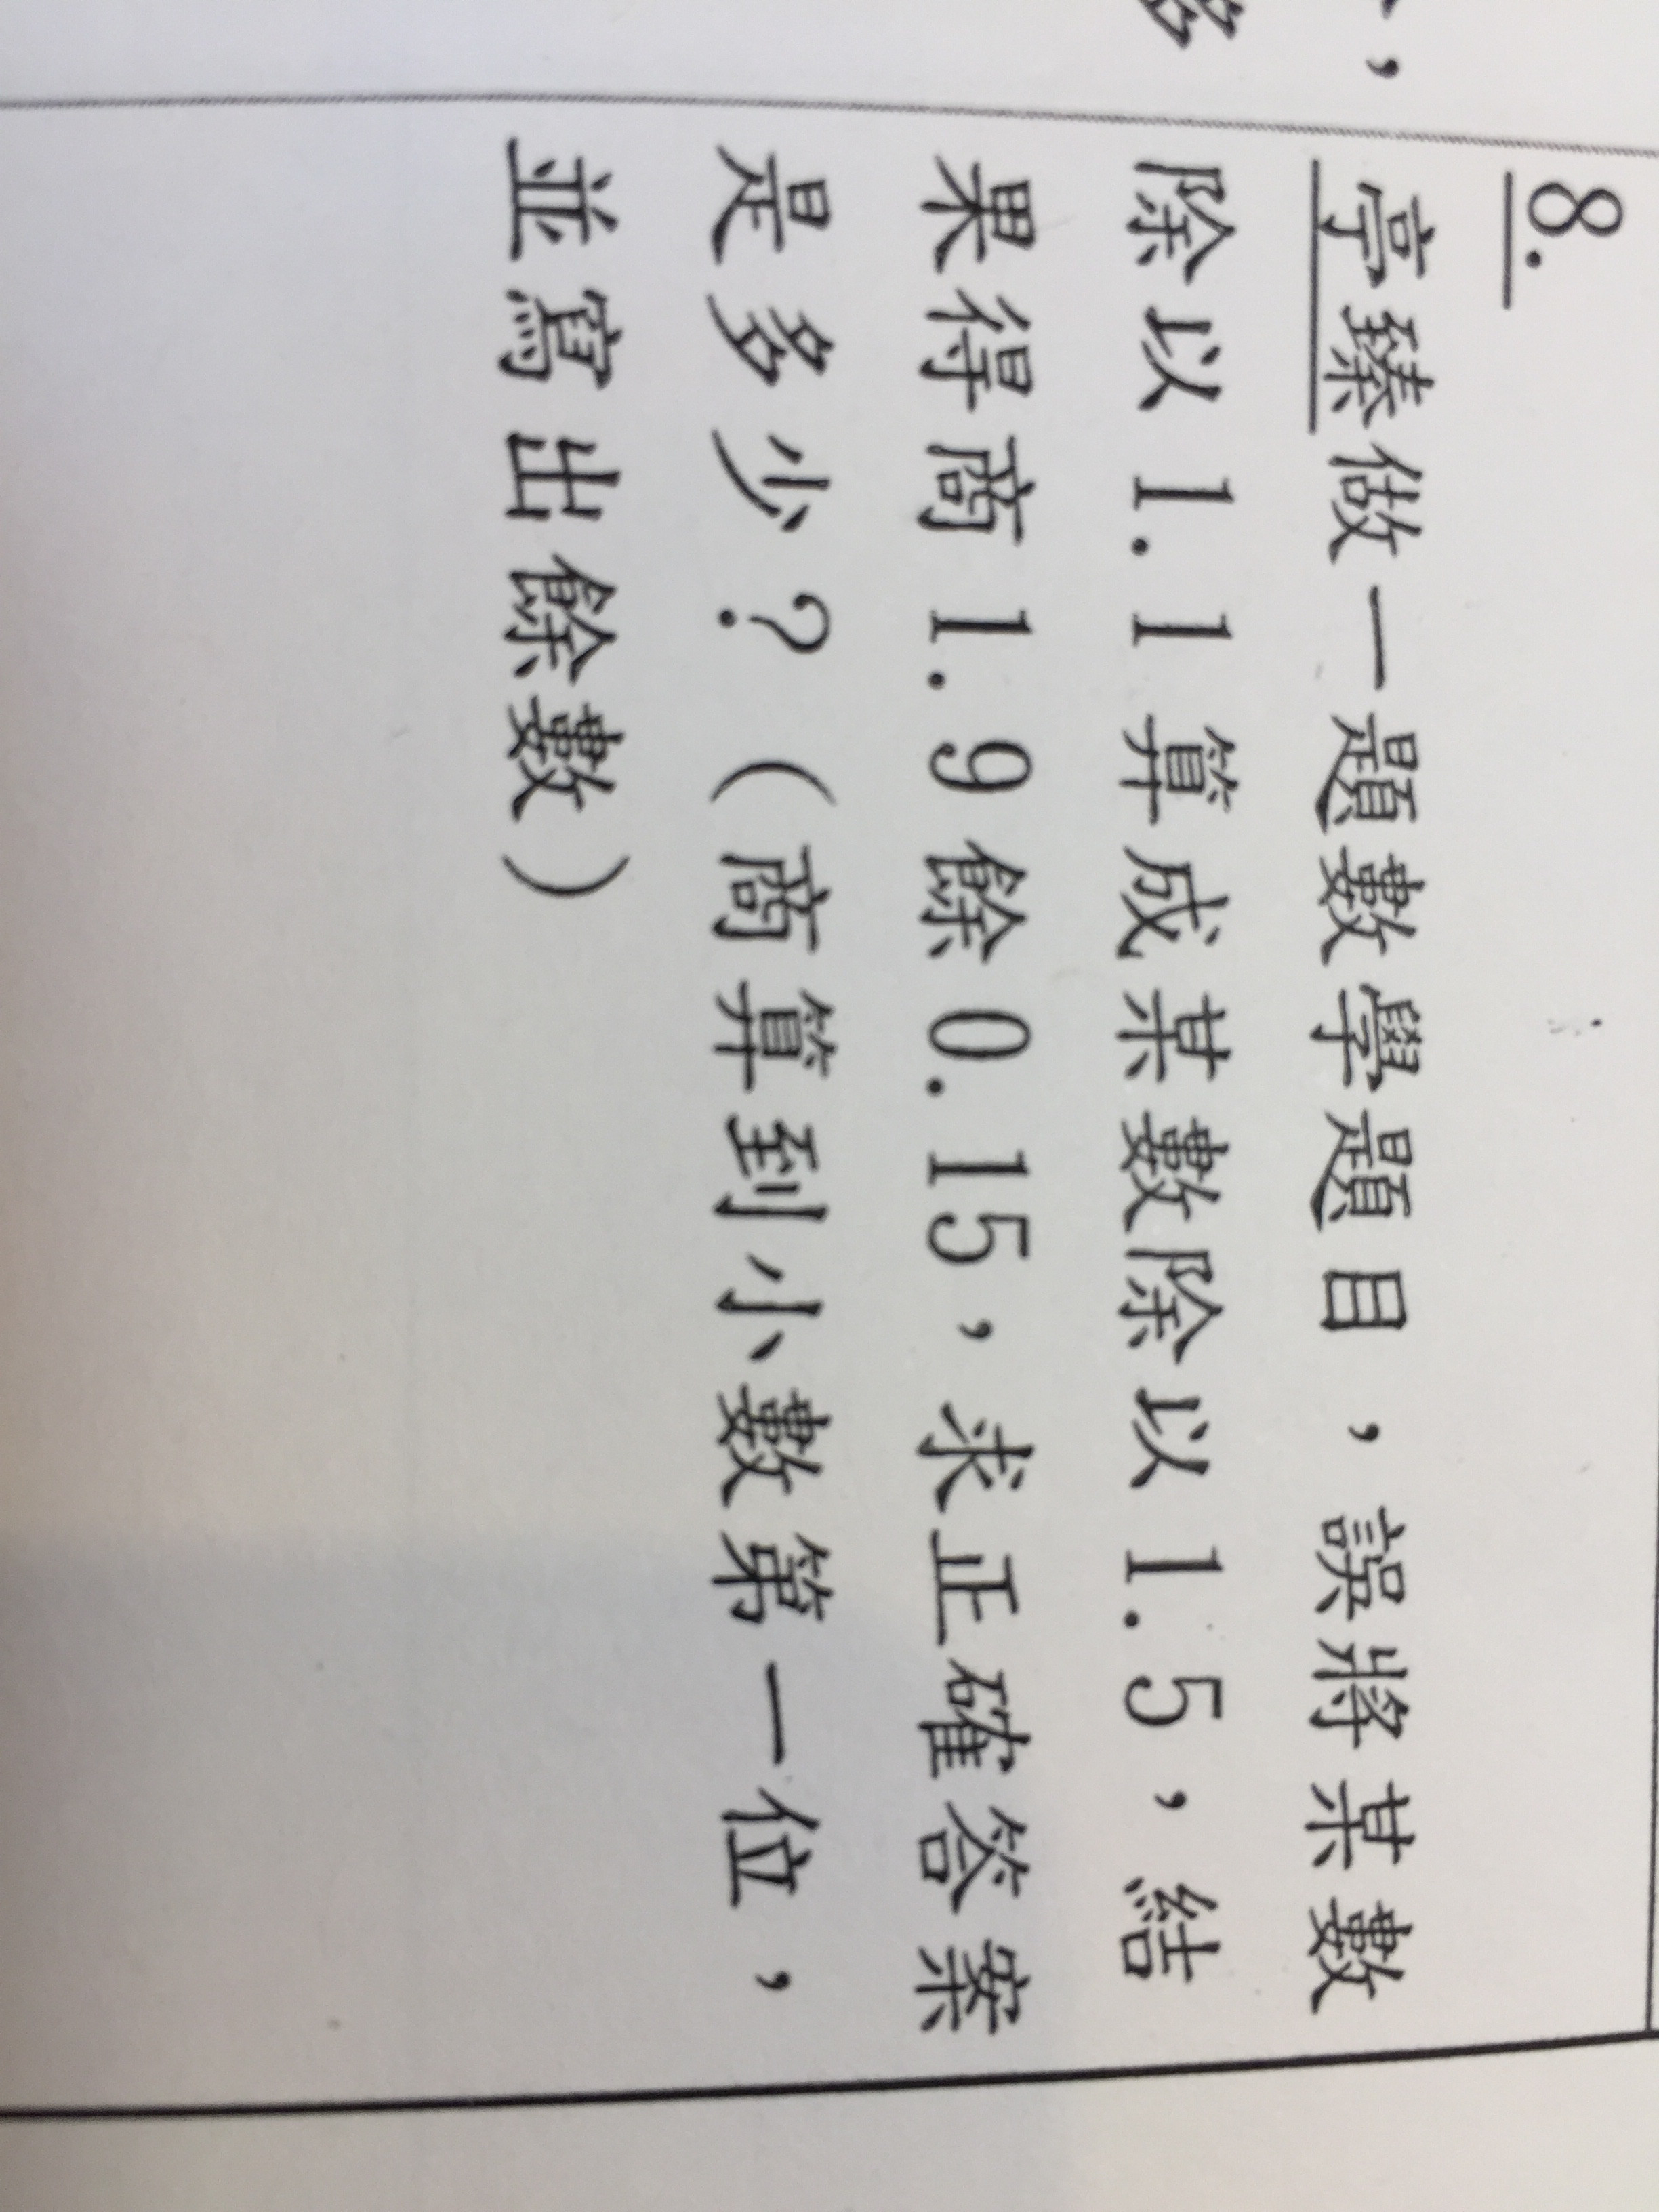 ，
多
8.
亭臻做一題數學題目，誤將某數
除以1.1算成某數除以1.5，結
果得商1.9餘0.15，求正確答案
是多少？（商算到小數第一位，
並寫出餘數）